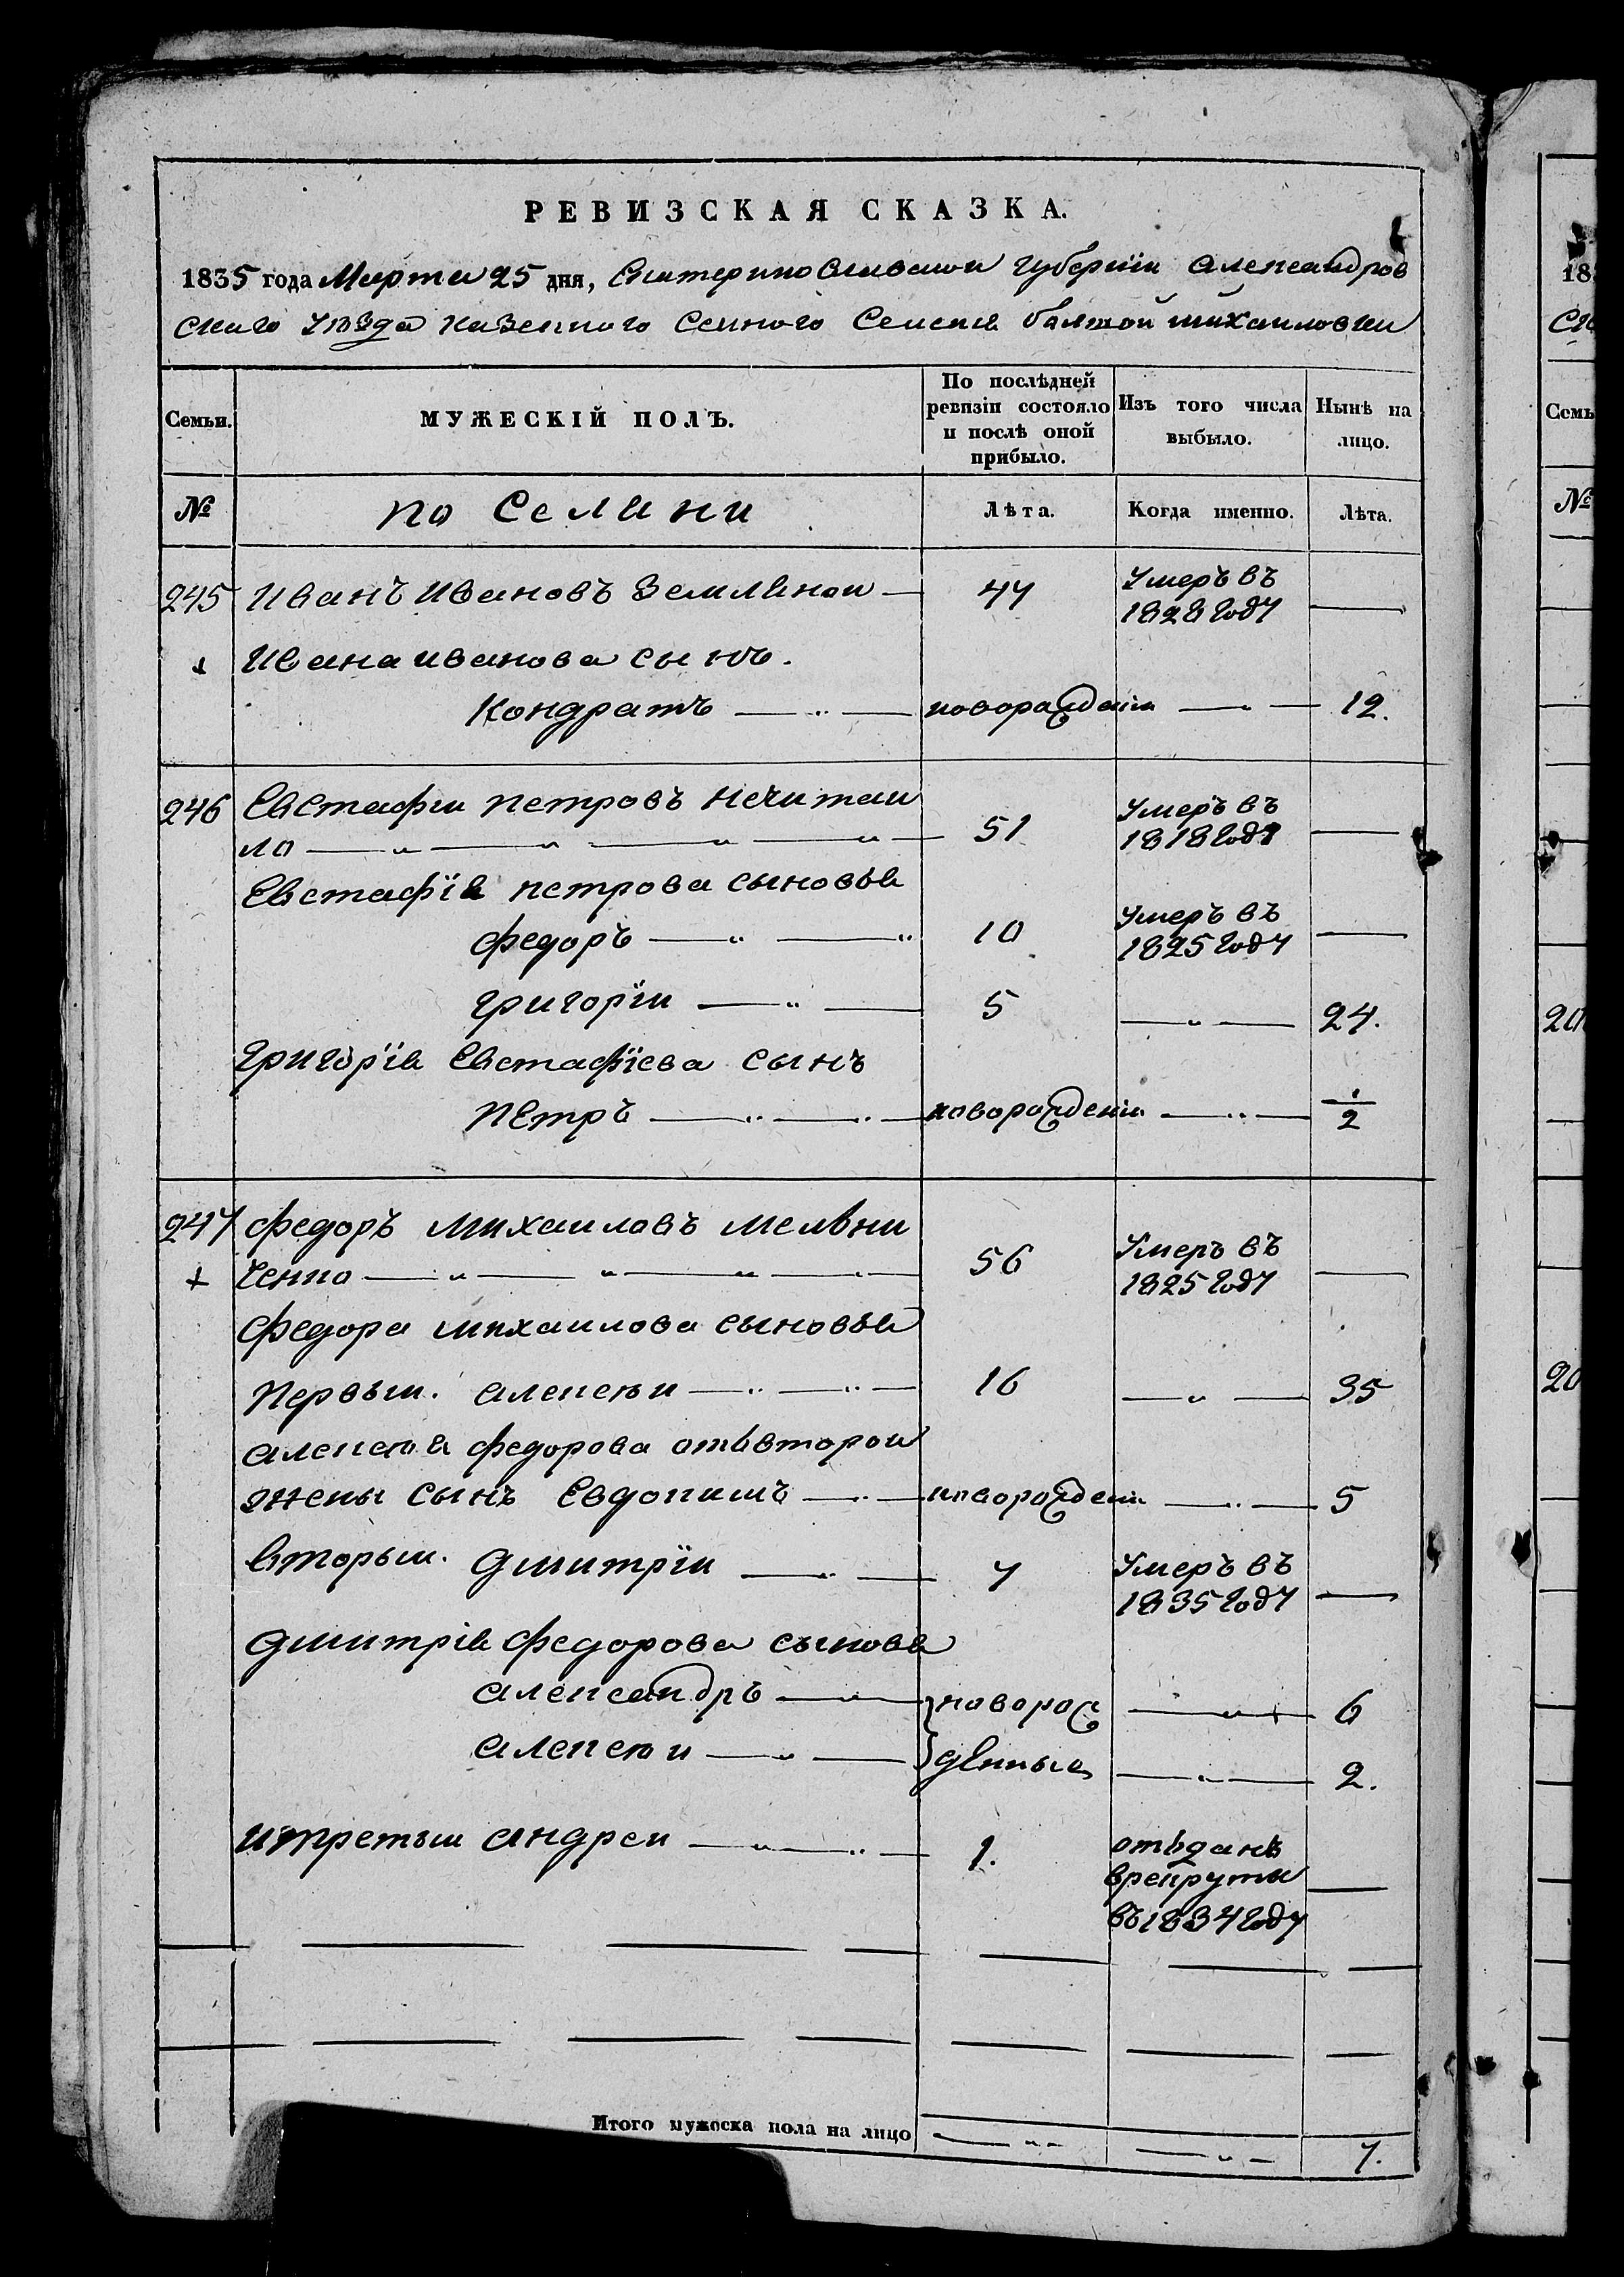 РЕВИЗСКАЯ СКАЗКА.
1835 года Марта 25 дня, Екатеринославской губерніи Александров
скаго Уѣзда казенного Селеня болшой михаиловки
Семьи.
МУЖЕСКІЙ ПОЛЪ.
По послѣдней ревизіи состояло и послѣ оной прибыло.
Изъ того числа выбыло.
Нынѣ на лицо.
№
Лѣта.
Когда именно.
Лѣта.
245 Иванъ Ивановъ Землянои 44 Умеръ въ
1828 году
Ивана иванова сынъ.
Кондратъ новорожденъ 12.
246 Евстафии петровъ нечитаи
ло 51 Умеръ въ
1818 году
Евстафія петрова сыновья
федоръ 10 Умеръ въ
1825 году
григоріи 5 24.
григорія Евстафіева сынъ
петръ новорожденъ 1/2
247 федоръ михаиловъ мелни
ченко 56 Умеръ въ
1825 году
федора михаилова сыновья
первыи. алексѣи 16 35
алексѣя федорова отъ второи
жены сынъ Евдокимъ новорожденъ 5
вторыи. Дмитріи 7 Умеръ въ
1835 году
Дмитрія федорова сыновя
александръ новорож 6
алексѣи денные 2.
итретыи андреи 1. отъданъ
врекруты
въ 1834 году
Итого мужеска пола на лицо 7.
18
Семь
№